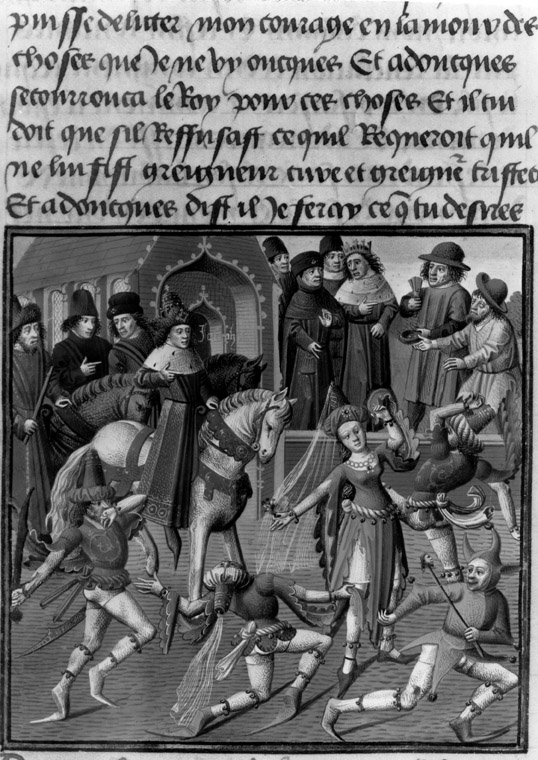 puisse deliter mon courage en lamour des
choses que Je ne vy oncques Et adoncques
se courrouca le Roy pour ces choses Et il lui
doit que sil Reffusast ce quil Requeroit quil
ne lui fist greigneur cure et greigneur tristec
Et adoncques dist il Je feray ce q̃ tu desires